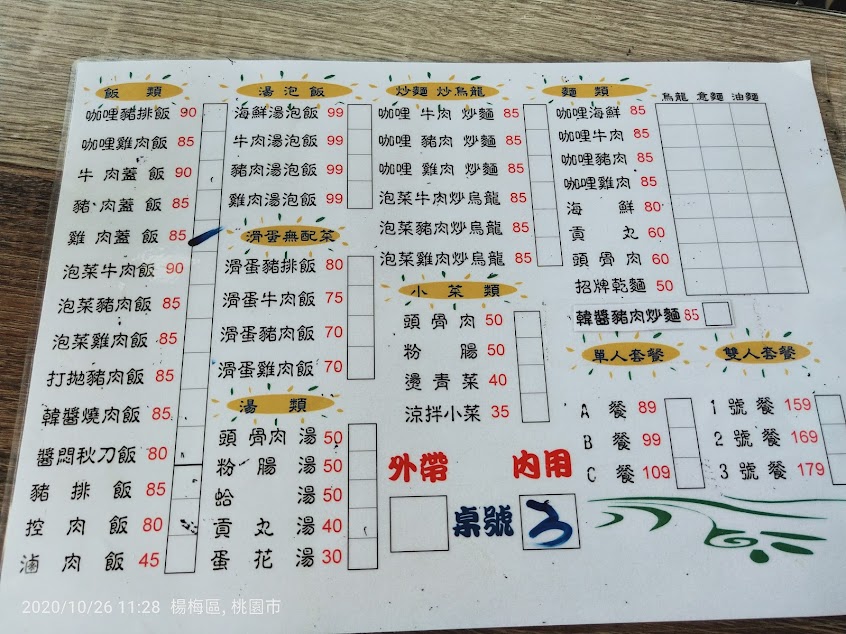 飯類
咖哩豬排飯 90
咖哩雞肉飯 85
牛肉蓋飯 90
豬肉蓋飯 85
雞肉蓋飯 85
泡菜牛肉飯 90
泡菜豬肉飯 85
泡菜雞肉飯 85
打拋豬肉飯 85
韓醬燒肉飯 85
醬悶秋刀飯 80
豬排飯 85
控肉飯 80
滷肉飯 45
湯泡飯
海鮮湯泡飯 99
牛肉湯泡飯 99
豬肉湯泡飯 99
雞肉湯泡飯 99
滑蛋無配菜
滑蛋豬排飯 80
滑蛋牛肉飯 75
滑蛋豬肉飯 70
滑蛋雞肉飯 70
湯類
頭骨肉湯 50
粉腸湯 50
蛤湯 50
貢丸湯 40
蛋花湯 30
炒麵 炒烏龍
咖哩牛肉炒麵 85
咖哩豬肉炒麵 85
咖哩雞肉炒麵 85
泡菜牛肉炒烏龍 85
泡菜豬肉炒烏龍 85
泡菜雞肉炒烏龍 85
小菜類
頭骨肉 50
粉腸 50
燙青菜 40
涼拌小菜 35
外帶 內用
桌號
麵類 烏龍 意麵 油麵
咖哩海鮮 85
咖哩牛肉 85
咖哩豬肉 85
咖哩雞肉 85
海鮮 80
貢丸 60
頭骨肉 60
招牌乾麵 50
韓醬豬肉炒麵 85
單人套餐
A餐 89
B餐 99
C餐 109
雙人套餐
1號餐 159
2號餐 169
3號餐 179
2020/10/26 11:28 楊梅區, 桃園市